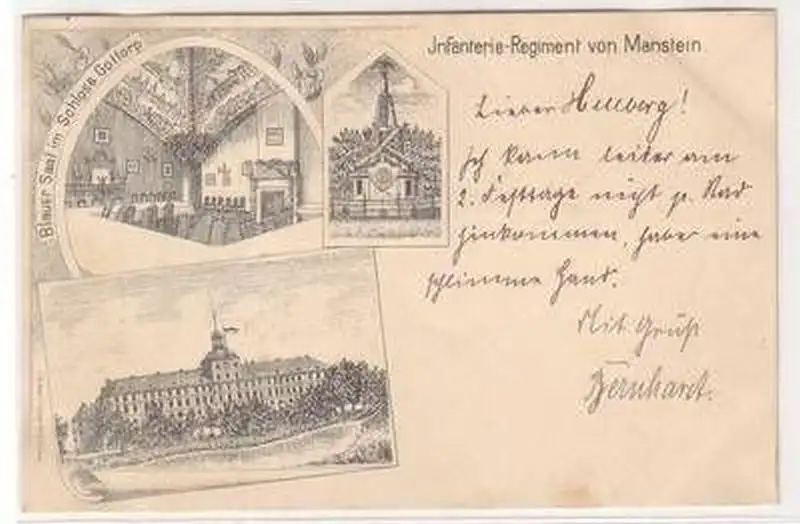 Infanterie-Regiment von Manstein.
Blauer Saal im Schloss Gottorp
Lieber !
Ich kann leider am
2. Festtage nicht p. Rad
hinkommen, habe eine
schlimme Hand.
Mit Gruß
Bernhard.